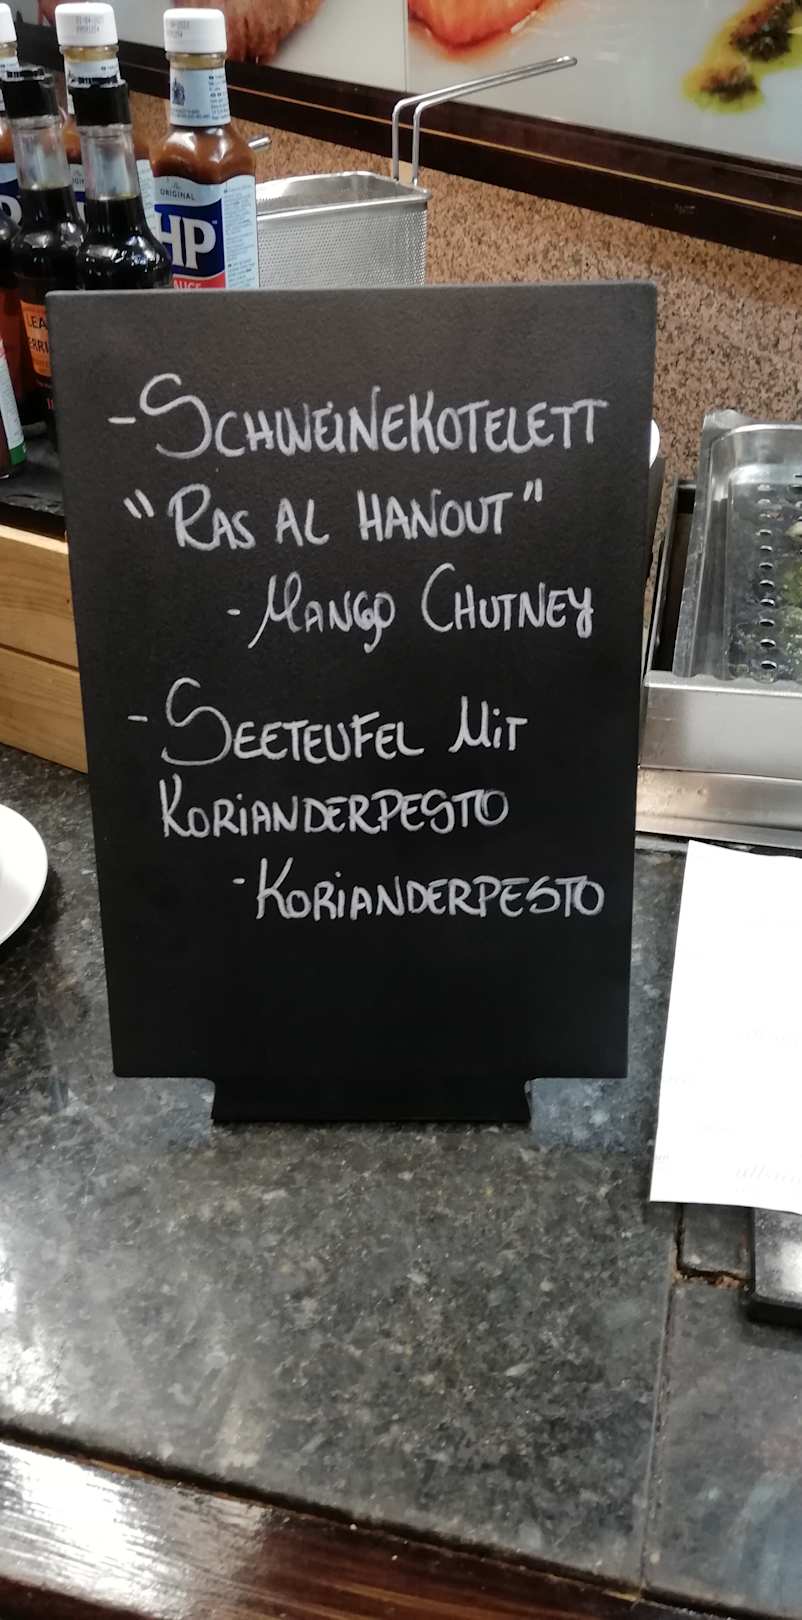 ORIGINAL
HP
- SCHWEINEKOTELETT
"RAS AL HANOUT"
- MANGO CHUTNEY
- SEETEUFEL MIT
KORIANDERPESTO
- KORIANDERPESTO